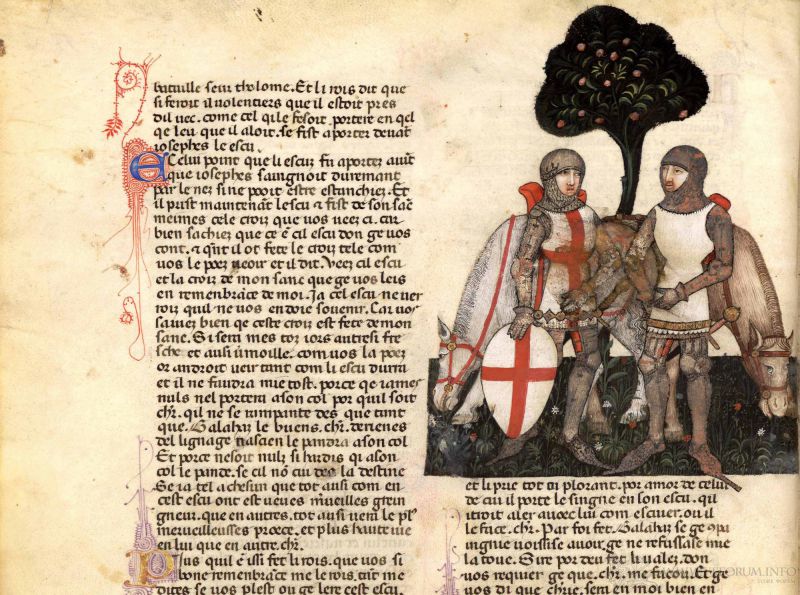 bataille seur tholome. Et li rois dit que
si feroit il uolentiers que il estoit pres
dil uec. come cel qi le fesoit porteir en qel
qe leu que il aloit. se fist aporter deuāt
iosephes le escu.
A Celui point que li escuz fu aportez auāt
que iosephes saingnoit duremant
par le nez si ne pooit estre estanchiez. Et
il prist maintenāt lescu & fist de son sāc
meimes cele croiz que uos ueez ci. car
bien sachiez que ce ē cil escu don ge uos
cont. & qāt il ot fete le croiz tele com
uos le poez ueoir et il dit. Veez cil escu
et la croiz de mon sanc que ge uos leis
en remenbrāce de moi. Ja cel escu ne uer
roiz quil ne uos en doie souenir. Car uos
sauez bien qe ceste croiz est fete de mon
sanc. Si sera mes toz iors autresi fre
sche et ausi umoille. com uos la poez
or androit ueir tant com li escu durra
et il ne faudra mie tost. porce qe iames
nuls nel portera a son col por quil soit
chr. qil ne se rampante des que tant
que. Galahaz le buens. chr. derienes
del lignage nascien le pandra a son col
Et porce ne soit nulz si hardis qi a son
col le pande. se cil nō cui deo la destine
Se ia tel acheisun que tot ausi com en
cest escu ont est ueues merueilles grein
gneur. que en autres. tot ausi uera le pl'
merueilleusses proece. et plus haute uie
en lui que en autre. chr.
Puis quil ē issi fet li rois. que uos si
bone remenbrāce me le rois. tāt me
dites se uos plest ou ge lere cest escu.
et li prie tot en plorant. por amor de celui
de cui il porte le singne en son escu. qil
itroit aler auoec lui com escuer. ou il
le face. chr. Par foi fet. Galahaz se ge
uoisisse auoir. ge ne refussasse mie
la uoie. Sire por deu fet li ualez. don
uos requier ge que. chr. me faceu. Et ge
uos di que chr. sera en moi bien en